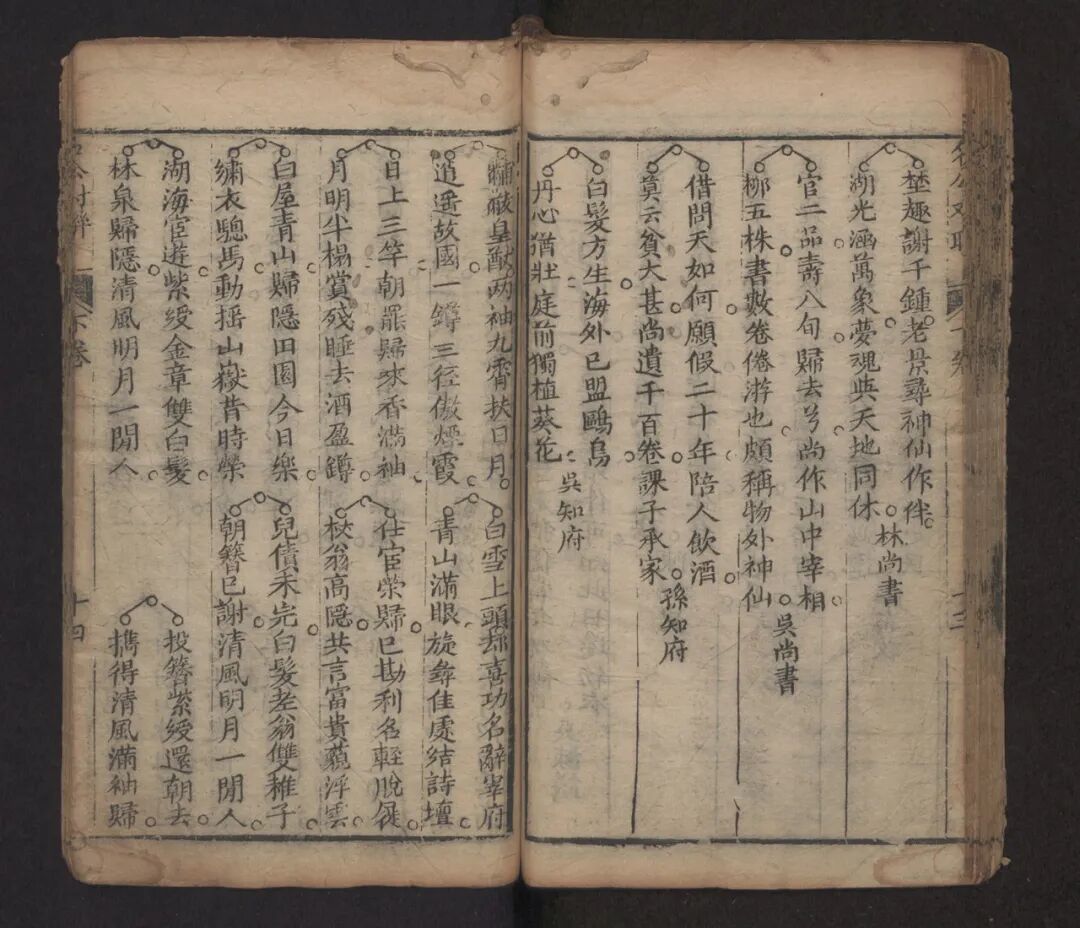 楚趣謝千鍾老景尋神仙作伴
湖光涵萬象夢魂與天地同休
林尚書
官二品壽八旬歸去兮尚作山中宰相
柳五株書數卷倦游也頗稱物外神仙
吳尚書
借問天如何願假二十年陪人飲酒
莫云貧大甚尚遺千百卷課子承家
孫知府
白髮方生海外已盟鷗鳥
丹心猶壯庭前獨植葵花
吳知府
十三
黼黻皇猷两袖九霄扶日月
逍遥故國一鐏三徑傲煙霞
白雪上頭却喜功名辭宰府
青山滿眼旋尋佳處结詩壇
日上三竿朝罷歸來香滿袖
月明半榻賞殘睡去酒盈鐏
仕宦榮歸已勘利名輕脫屣
梜翁高隱共言富貴藐浮雲
白屋青山歸隱田園今日樂
繡衣驄馬動揺山嶽昔時榮
兒債未完白髮老翁雙稚子
朝簪已謝清風明月一閒人
湖海宦遊紫綬金章雙白髮
林泉歸隱清風明月一閒人
投簪紫綬還朝去
携得清風滿袖歸
下卷
十四